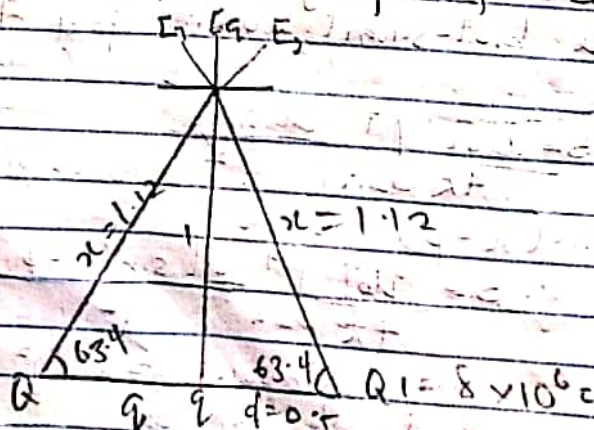 E, Eq E,
x = 1.12
1
x = 1.12
63.4
63.4
Q q q d = 0.5 Q1 = 8 × 10⁶ c